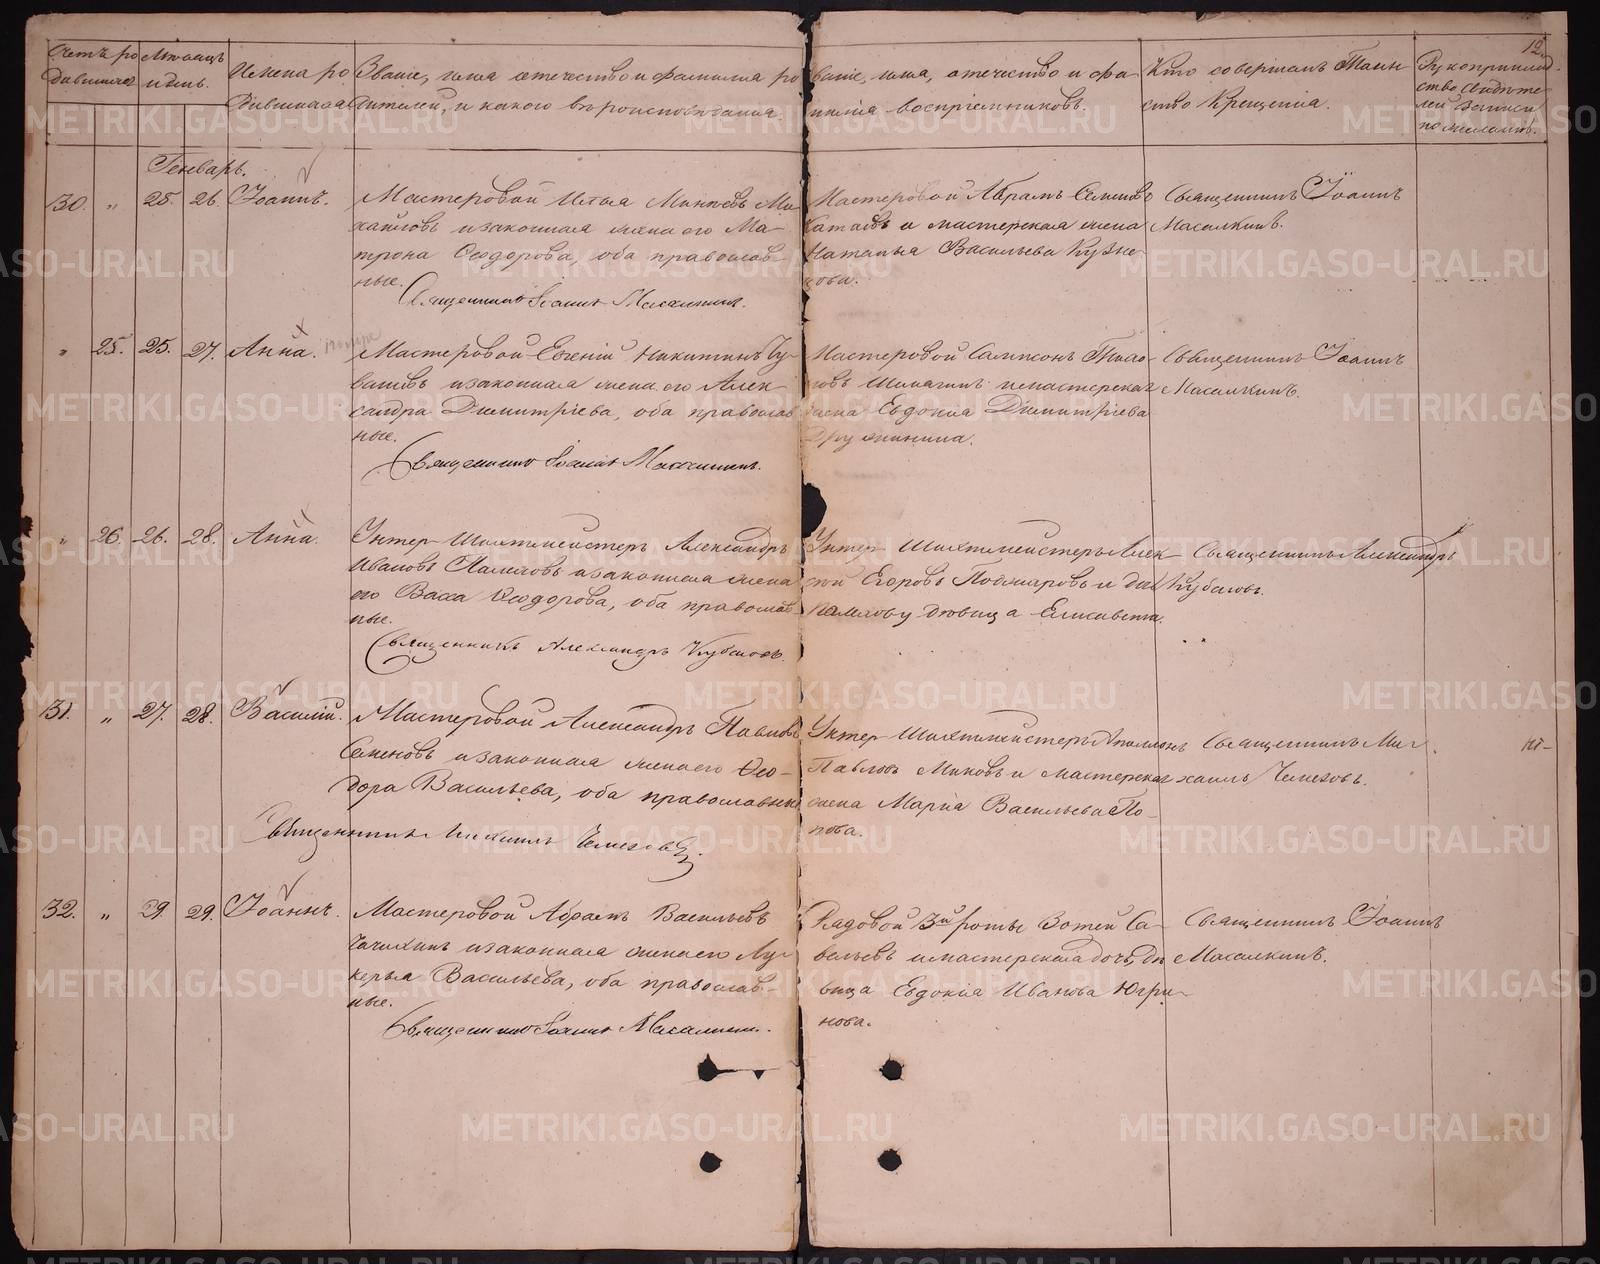 12.
Счетъ ро- дившихся
Мѣсяцъ и день.
Имена ро- дившихся
Званіе, имя, отечество и фамилія ро-
дителей, и какого вѣроисповѣданія.
Званіе, имя, отечество и фа-
милія воспріемниковъ.
Кто совершалъ Таин-
ство Крещенія.
Рукоприклад-
ство свидѣте-
лей записи
по желанію.
Генварь.
30. „ 25. 26. Іоаннъ.
Мастеровой Илья Минѣевъ Ми-
хайловъ и законная жена его Ма-
трона Ѳеодорова, оба православ-
ные.
Священникъ Іоаннъ Масалкинъ.
Мастеровой Абрамъ Семеновъ
и мастерская жена
Наталья Васильева Кузне-
цова.
Священникъ Іоаннъ
Масалкинъ.
„ 25. 25. 27. Анна.
Мастеровой Евгеній Никитинъ Чу-
вашовъ и законная жена его Алек-
сандра Димитріева, оба православ-
ные.
Священникъ Іоаннъ Масалкинъ.
Мастеровой Сампсонъ
и мастерская
жена Евдокія Димитріева
Дружинина.
Священникъ Іоаннъ
Масалкинъ.
„ 26. 26. 28. Анна.
Унтер-Шихтмейстеръ Александръ
Ивановъ и законная жена
его Васса Ѳеодорова, оба православ-
ные.
Священникъ Александръ Кубасовъ.
Унтер-Шихтмейстеръ Алек-
сѣй Егоровъ и
дѣвица Елисавета.
Священникъ Александръ
Кубасовъ.
31. „ 27. 28. Василій.
Мастеровой Александръ Павловъ
Семеновъ и законная жена его Ѳео-
дора Васильева, оба православные
Священникъ Михаилъ Чемезовъ
Унтер-Шихтмейстеръ Аполлонъ
Павловъ и мастерская
жена Марія Васильева По-
пова.
Священникъ Ми-
хаилъ Чемезовъ.
32. „ 29. 29. Іоаннъ.
Мастеровой Абрамъ Васильевъ
и законная жена его Лу-
керья Васильева, оба православ-
ные.
Священникъ Іоаннъ Масалкинъ.
Рядовой 3й роты Зотей Са-
вельевъ и мастерская дочь, дѣ-
вица Евдокія Иванова Югри-
нова.
Священникъ Іоаннъ
Масалкинъ.
METRIKI.GASO-URAL.RU